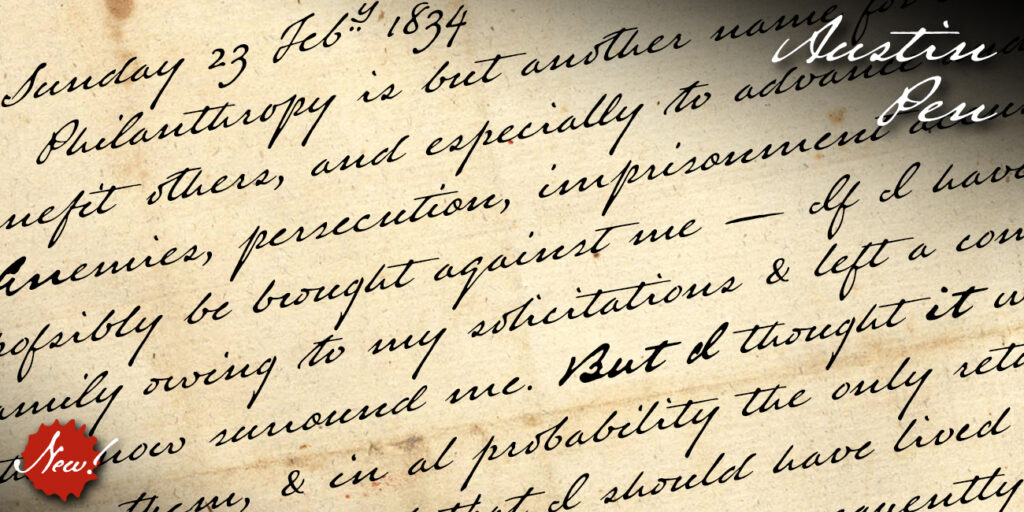 Sunday 23 Feb.ʸ 1834
Philanthropy is but another name for
Austin
Pen
nefit others, and especially to advance
Enemies, persecution, imprisonment
pofsibly be brought against me — If I have
amily owing to my solicitations & left a con
now surround me. But I thought it w
New!
them, & in al probability the only reta
that I should have lived
quently